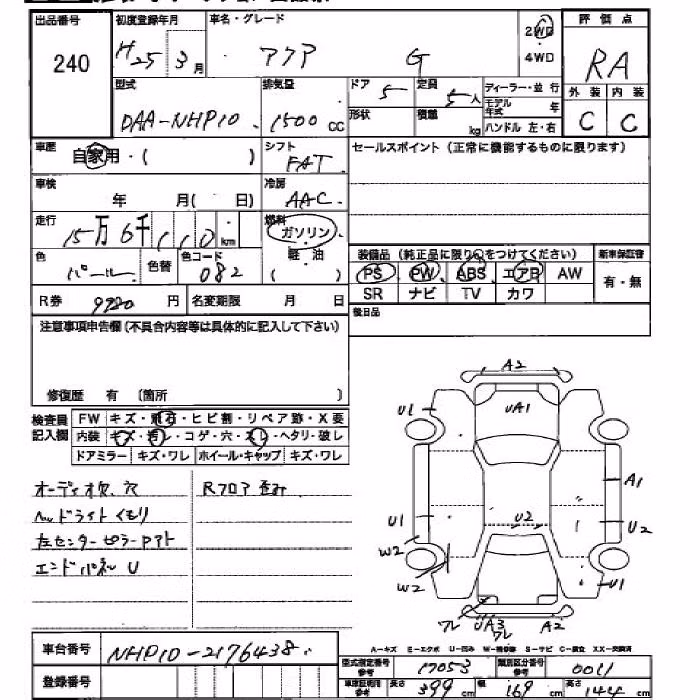 出品番号 初度登録年月 車名・グレード 2WD 評価点
240 H25 3月 アクア G 4WD RA
型式 排気量 ドア 5 定員 5人 ディーラー・並行 外装 内装
DAA-NHP10 1500cc 形状 積載 kg モデル年式 年 C C
ハンドル 左・右
車歴 自家用・( ) シフト FAT セールスポイント (正常に機能するものに限ります)
車検 年 月( 日) 冷房 AAC
走行 15万6千110km 燃料 ガソリン
軽・油
( )
色 パール 色替 色コード 082
装備品 (純正品に限り○をつけてください) 新車保証書
PS PW ABS エアB AW 有・無
SR ナビ TV カワ
R券 9720円 名変期限 月 日
後日品
注意事項申告欄 (不具合内容等は具体的に記入して下さい)
修復歴 有 (箇所 )
検査員 FW キズ・飛石・ヒビ割・リペア跡・X要
記入欄 内装 キズ・汚レ・コゲ・穴・スレ・ヘタリ・破レ
ドアミラー キズ・ワレ ホイール・キャップ キズ・ワレ
オーディオ欠、穴 Rフロア歪み
ヘッドライトくもり
左センターピラーアト
エンドパネル U
A2
U1 UA1
A1
U1 U2 U2
W2
W2 U1
ワレ UA3 A2
ワレ
A-キズ E-エクボ U-凹み W-補修跡 S-サビ C-腐食 XX-交換済
車台番号 NHP10-2176438
型式指定番号 参考 17053 類別区分番号 参考 0011
登録番号
車庫証明用 参考 長さ 399cm 幅 169cm 高さ 144cm